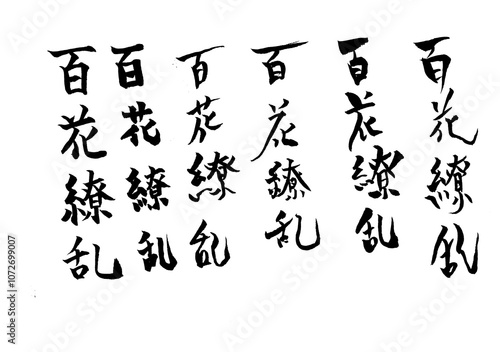 百花繚乱
百花繚乱
百花繚乱
百花繚乱
百花繚乱
百花繚乱
Adobe Stock | #1072699007